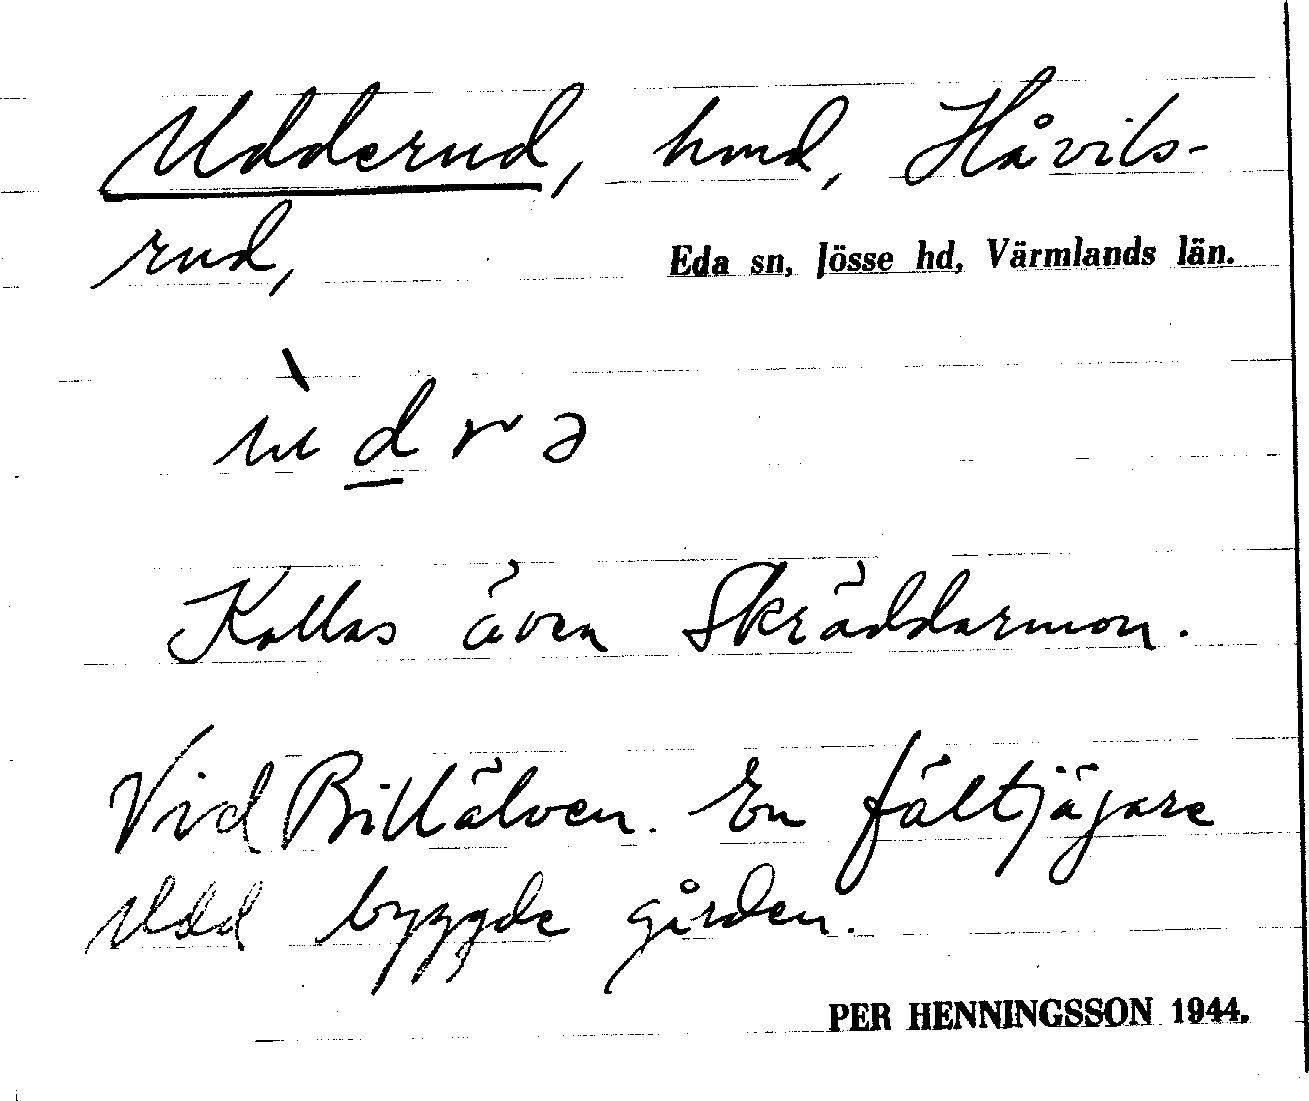 Udderud, hmd, Håvils-
rud,
Eda sn, Jösse hd, Värmlands län.
ùdrə
Kallas även Skräddarmon.
Vid Billälven. En fältjägare
Udd byggde gården.
PER HENNINGSSON 1944.